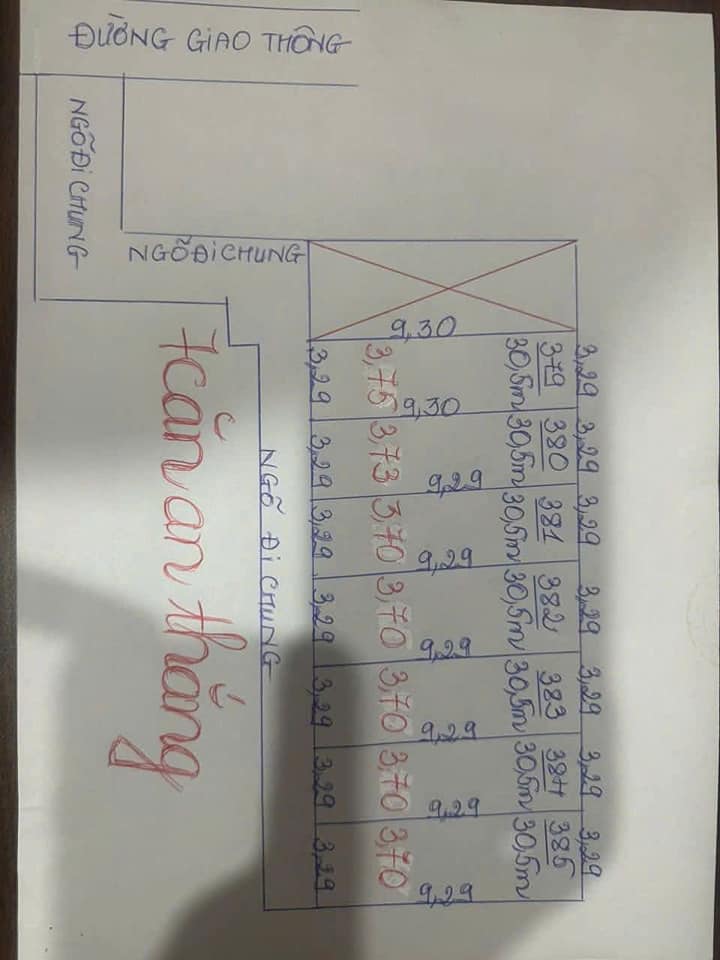 ĐƯỜNG GIAO THÔNG
NGÕ ĐI CHUNG
NGÕ ĐI CHUNG
9,30
3,29 3,75 30,5m 379 3,29
9,30
3,29 3,73 30,5m 380 3,29
9,29
3,29 3,70 30,5m 381 3,29
9,29
3,29 3,70 30,5m 382 3,29
9,29
3,29 3,70 30,5m 383 3,29
9,29
3,29 3,70 30,5m 384 3,29
9,29
3,29 3,70 30,5m 385 3,29
9,29
NGÕ ĐI CHUNG
7 căn an thắng